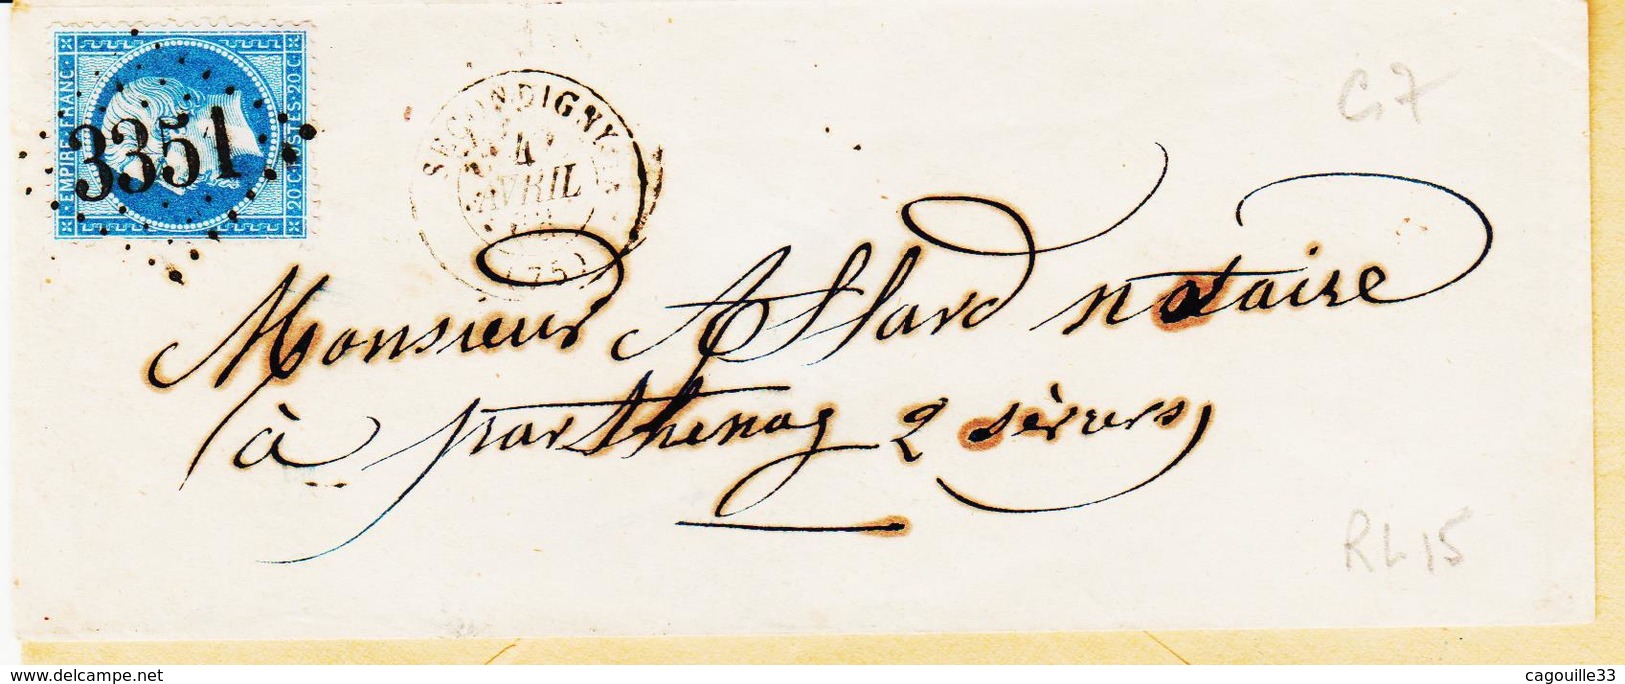 EMPIRE·FRANC·
20 C·POSTES·20 C·
3351
SECONDIGNY
4
AVRIL
(75)
G7
Monsieur Allard notaire
à parthenay 2 sèvres
RL 15
© delcampe.net
cagouille33